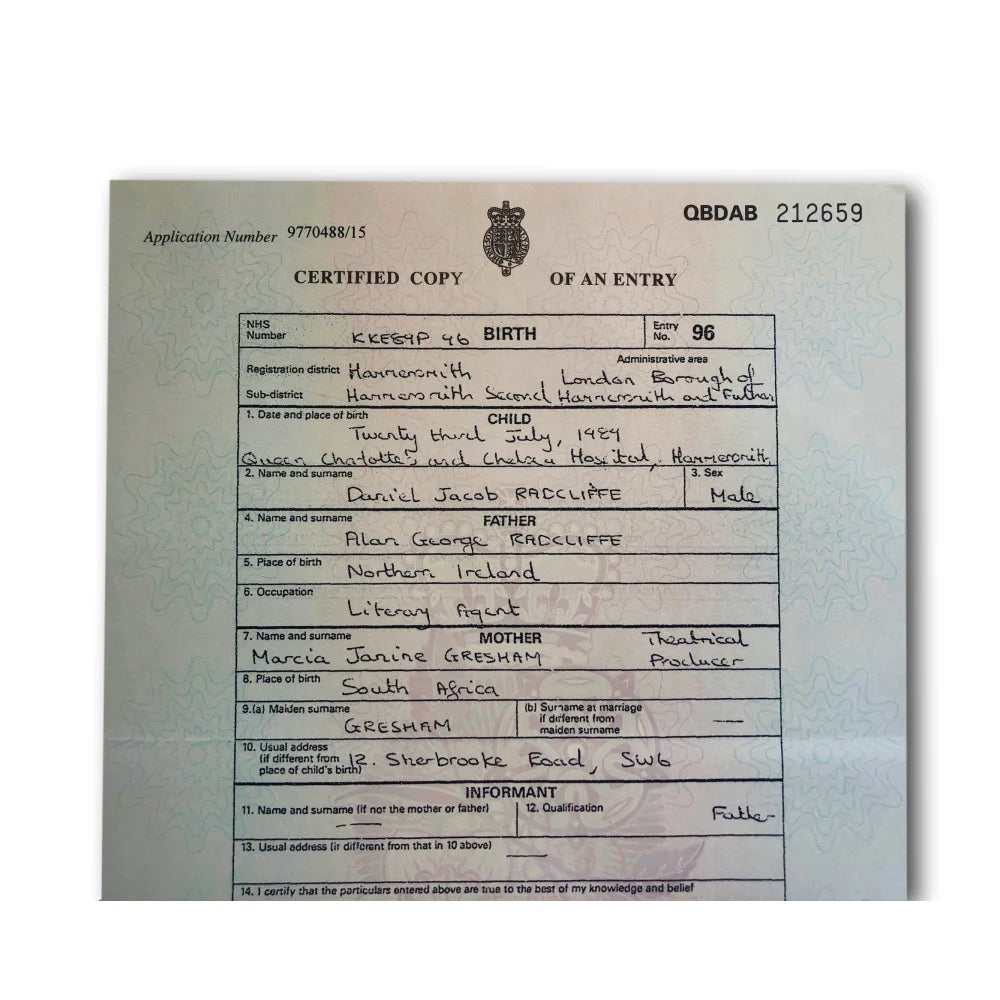 Application Number 9770488/15
QBDAB 212659
CERTIFIED COPY OF AN ENTRY
NHS Number BIRTH Entry No. 96
Administrative area
Registration district Hammersmith London Borough of
Sub-district Hammersmith Second Hammersmith and Fulham
1. Date and place of birth CHILD
Twenty third July, 1989
Queen Charlotte's and Chelsea Hospital, Hammersmith
2. Name and surname 3. Sex
Daniel Jacob RADCLIFFE Male
4. Name and surname FATHER
Alan George RADCLIFFE
5. Place of birth
Northern Ireland
6. Occupation
Literary Agent
7. Name and surname MOTHER Theatrical
Marcia Janine GRESHAM Producer
8. Place of birth
South Africa
9.(a) Maiden surname (b) Surname at marriage
if different from
GRESHAM maiden surname
10. Usual address
(if different from 12. Sherbrooke Road, SW6
place of child's birth)
INFORMANT
11. Name and surname (if not the mother or father) 12. Qualification Father
13. Usual address (if different from that in 10 above)
14. I certify that the particulars entered above are true to the best of my knowledge and belief